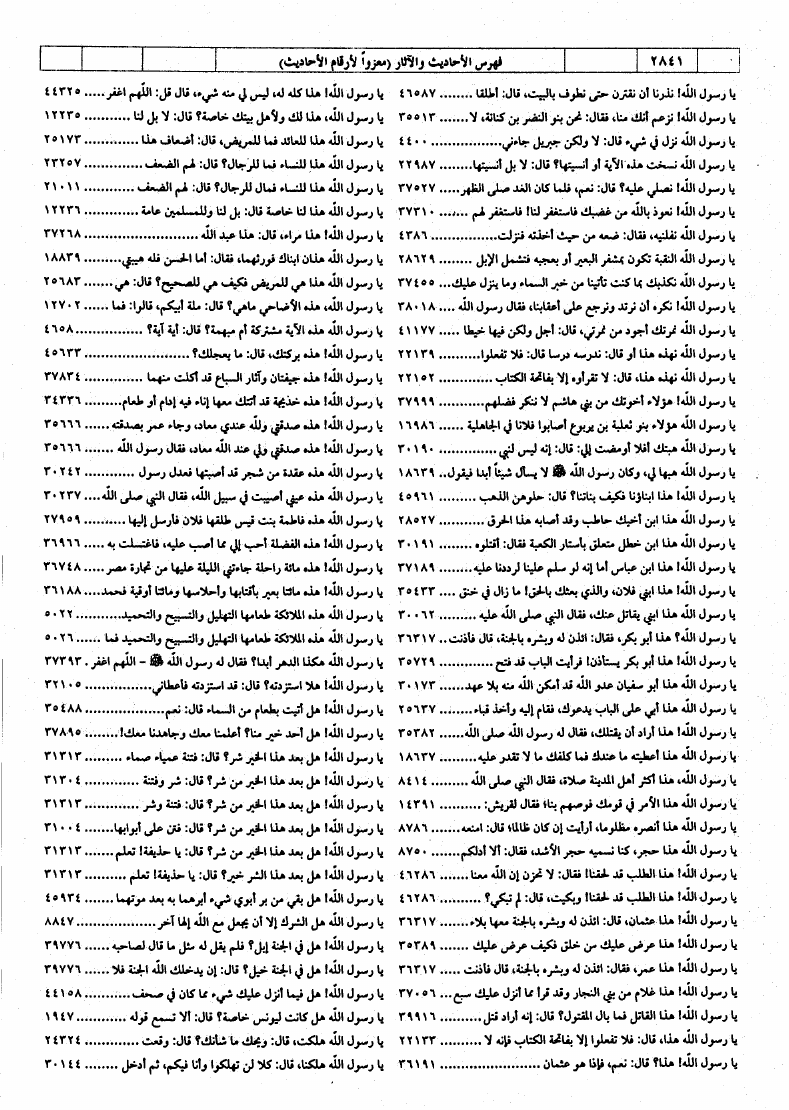 ٢٨٤١
فهرس الأحاديث والآثار (معزواً لأرقام الأحاديث)
يا رسول اللّه! نذرنا أن نقترن حتى نطوف بالبيت، قال: أطلقا ........ ٤٦٥٨٧
يا رسول اللّه! نزعم أنك منا، فقال: نحن بنو النضر بن كنانة، لا ...... ٣٥٥١٣
يا رسول اللّه نزل في شيء قال: لا ولكن جبريل جاءني................ ٤٤٠٠
يا رسول اللّه نسخت هذه الآية أو أنسيتها؟ قال: لا بل أنسيتها....... ٢٢٩٨٧
يا رسول اللّه! نصلي عليه؟ قال: نعم، فلما كان الغد صلى الظهر ..... ٣٧٥٢٧
يا رسول اللّه! نعوذ باللّه من غضبك فاستغفر لنا! فاستغفر لهم ....... ٣٧٣١٠
يا رسول اللّه نفلنيه، فقال: ضعه من حيث أخذته فنزلت............... ٤٣٨٦
يا رسول اللّه النقبة تكون بمشفر البعير أو بعجبه فتشمل الإبل ...... ٢٨٦٢٩
يا رسول اللّه نكذبك بما كنت تأتينا من خبر السماء وما ينزل عليك... ٣٧٤٥٥
يا رسول اللّه! نكره أن نرتد ونرجع على أعقابنا، فقال رسول اللّه .... ٣٨٠١٨
يا رسول اللّه نمرتك أجود من نمرتي، قال: أجل ولكن فيها خيطا ..... ٤١١٧٧
يا رسول اللّه نهذه هذا أو قال: ندرسه درسا قال: فلا تفعلوا.......... ٢٢١٣٩
يا رسول اللّه نهذه هذا، قال: لا تقرأوه إلا بفاتحة الكتاب ............. ٢٢١٥٢
يا رسول اللّه! هؤلاء أخوتك من بني هاشم لا ننكر فضلهم............ ٣٧٩٩٩
يا رسول اللّه هؤلاء بنو ثعلبة بن يربوع أصابوا فلانا في الجاهلية ...... ١٦٩٨٦
يا رسول اللّه هبتك أفلا أومضت إلي: قال: إنه ليس لنبي.............. ٣٠١٩٠
يا رسول اللّه هبها لي، وكان رسول اللّه ﷺ لا يسأل شيئاً أبدا فيقول.. ١٨٦٣٩
يا رسول اللّه! هذا ابناؤنا فكيف بناتنا؟ قال: حلوهن الذهب ......... ٤٥٩٦١
يا رسول اللّه هذا ابن أخيك حاطب وقد أصابه هذا الحرق ........... ٢٨٥٢٧
يا رسول اللّه! هذا ابن خطل متعلق بأستار الكعبة فقال: أقتلوه ........ ٣٠١٩١
يا رسول اللّه! هذا ابن عباس أما إنه لو سلم علينا لرددنا عليه........ ٣٧١٨٩
يا رسول اللّه! هذا ابني فلان، والذي بعثك بالحق! ما زال في خنق .... ٣٥٤٣٣
يا رسول اللّه هذا ابني يقاتل عنك، فقال النبي صلى اللّه عليه .......... ٣٠٠٦٢
يا رسول اللّه؟ هذا أبو بكر، فقال: ائذن له وبشره بالجنة، قال فأذنت.. ٣٦٣١٧
يا رسول اللّه! هذا أبو بكر يستأذن! فرأيت الباب قد فتح ............. ٣٥٧٢٩
يا رسول اللّه هذا أبو سفيان عدو اللّه قد أمكن اللّه منه بلا عهد....... ٣٠١٧٣
يا رسول اللّه هذا أبي على الباب يدعوك، فقام إليه وأخذ قباء........ ٢٥٦٣٧
يا رسول اللّه! هذا أراد أن يقتلك، فقال له رسول اللّه صلى اللّه....... ٣٥٣٨٢
يا رسول اللّه هذا أعطيته ما عندك فما كلفك ما لا تقدر عليه ......... ١٨٦٣٧
يا رسول اللّه، هذا أكثر أهل المدينة صلاة، فقال النبي صلى اللّه ....... ٨٤١٤
يا رسول اللّه هذا الأمر في قومك فوصهم بنا؛ فقال لقريش: .......... ١٤٣٩١
يا رسول اللّه! هذا أنصره مظلوما، أرأيت إن كان ظالما؛ قال: امنعه .... ٨٧٨٦
يا رسول اللّه! هذا حجر، كنا نسميه حجر الأشد، فقال: ألا أدلكم..... ٨٧٥٠
يا رسول اللّه! هذا الطلب قد لحقنا! فقال: لا تحزن إن اللّه معنا....... ٤٦٢٨٦
يا رسول اللّه! هذا الطلب قد لحقنا! وبكيت، قال: لم تبكي؟ .......... ٤٦٢٨٦
يا رسول اللّه! هذا عثمان، قال: ائذن له وبشره بالجنة معها بلاء....... ٣٦٣١٧
يا رسول اللّه! هذا عرض عليك من خلق فكيف عرض عليك ......... ٣٥٣٨٩
يا رسول اللّه! هذا عمر، فقال: ائذن له وبشره بالجنة، قال فأذنت ..... ٣٦٣١٧
يا رسول اللّه! هذا غلام من بني النجار وقد قرأ مما أنزل عليك سبع... ٣٧٠٥٦
يا رسول اللّه! هذا القاتل فما بال المقتول؟ قال: إنه أراد قتل.......... ٣٩٩١٦
يا رسول اللّه هذا، قال: فلا تفعلوا إلا بفاتحة الكتاب فإنه لا .......... ٢٢١٣٣
يا رسول اللّه! هذا؟ قال: نعم، فإذا هو عثمان........................ ٣٦١٩١
يا رسول اللّه! هذا كله له، ليس لي منه شيء، قال قل: اللّهم اغفر ..... ٤٤٣٢٥
يا رسول اللّه! هذا لك ولأهل بيتك خاصة؟ قال: لا بل لنا ........... ١٢٢٣٥
يا رسول اللّه هذا للعائد فما للمريض، قال: أضعاف هذا............. ٢٥١٧٣
يا رسول اللّه! هذا للنساء فما للرجال؟ قال: لهم الضعف ............. ٢٣٢٥٧
يا رسول اللّه! هذا للنساء فمال للرجال؟ قال: لهم الضعف ............ ٢١٠١١
يا رسول اللّه! هذا لنا خاصة قال: بل لنا وللمسلمين عامة ............ ١٢٢٣٦
يا رسول اللّه! هذا مراء، قال: هذا عبد اللّه ........................... ٣٧٢٦٨
يا رسول اللّه هذان ابناك فورثهما، فقال: أما الحسن فله هيبتي......... ١٨٨٣٩
يا رسول اللّه هذا هي للمريض فكيف هي للصحيح؟ قال: هي........ ٢٥٦٨٣
يا رسول اللّه، هذه الأضاحي ماهي؟ قال: ملة أبيكم، قالوا: فما ...... ١٢٧٠٢
يا رسول اللّه هذه الآية مشتركة أم مبهمة؟ قال: أية آية؟ .............. ٤٦٥٨
يا رسول اللّه! هذه بركتك، قال: ما يعجلك؟........................ ٤٥٦٣٣
يا رسول اللّه! هذه جيفتان وآثار السباع قد أكلت منهما ............. ٣٧٨٣٤
يا رسول اللّه! هذه خديجة قد أتتك معها إناء فيه إدام أو طعام........ ٣٤٣٣٦
يا رسول اللّه! هذه صدقتي وللّه عندي معاد، وجاء عمر بصدقته ...... ٣٥٦٦٦
يا رسول اللّه! هذه صدقتي ولي عند اللّه معاد، فقال رسول اللّه ....... ٣٥٦٦٦
يا رسول اللّه! هذه عقدة من شجر قد أصبتها فعدل رسول .......... ٣٠٢٤٢
يا رسول اللّه! هذه عيني أصيبت في سبيل اللّه، فقال النبي صلى اللّه.... ٣٠٢٣٧
يا رسول اللّه هذه فاطمة بنت قيس طلقها فلان فأرسل إليها.......... ٢٧٩٥٩
يا رسول اللّه! هذه الفضلة أحب إلي مما أصب عليه، فاغتسلت به ..... ٣٦٩٦٦
يا رسول اللّه! هذه مائة راحلة جاءتني الليلة عليها من تجارة مصر ..... ٣٦٧٤٨
يا رسول اللّه! هذه مائتا بعير بأقتابها وأحلاسها ومائتا أوقية فحمد..... ٣٦١٨٨
يا رسول اللّه هذه الملائكة طعامها التهليل والتسبيح والتحميد.......... ٥٠٢٢
يا رسول اللّه! هذه الملائكة طعامها التهليل والتسبيح والتحميد فما ...... ٥٠٢٦
يا رسول اللّه هكذا الدهر أبدا؟ فقال له رسول اللّه ﷺ - اللّهم اغفر. ٣٧٣٩٣
يا رسول اللّه! هلا استزدته؟ قال: قد استزدته فأعطاني................ ٣٢١٠٥
يا رسول اللّه! هل أتيت بطعام من السماء قال: نعم.................. ٣٥٤٨٨
يا رسول اللّه! هل أحد خير منا؟ أعلمنا معك وجاهدنا معك!........ ٣٧٨٩٥
يا رسول اللّه! هل بعد هذا الخير شر؟ قال: فتنة عمياء صماء ......... ٣١٣١٣
يا رسول اللّه! هل بعد هذا الخير من شر؟ قال: شر وفتنة ............. ٣١٣٠٤
يا رسول اللّه! هل بعد هذا الخير من شر؟ قال: فتنة وشر ............. ٣١٣١٣
يا رسول اللّه! هل بعد هذا الخير من شر؟ قال: فتن على أبوابها........ ٣١٠٠٤
يا رسول اللّه! هل بعد هذا الخير من شر؟ قال: يا حذيفة! تعلم ....... ٣١٣١٣
يا رسول اللّه! هل بعد هذا الشر خير؟ قال: يا حذيفة! تعلم........... ٣١٣١٣
يا رسول اللّه! هل بقي من بر أبوي شيء أبرهما به بعد موتهما ........ ٤٥٩٣٤
يا رسول اللّه هل الشرك إلا أن يجعل مع اللّه إلها آخر................ ٨٨٤٧
يا رسول اللّه! هل في الجنة إبل؟ فلم يقل له مثل ما قال لصاحبه ...... ٣٩٧٧٦
يا رسول اللّه! هل في الجنة خيل؟ قال: إن يدخلك اللّه الجنة فلا ...... ٣٩٧٧٦
يا رسول اللّه! هل فيما أنزل عليك شيء مما كان في صحف.......... ٤٤١٥٨
يا رسول اللّه هل كانت ليونس خاصة؟ قال: ألا تسمع قوله .......... ١٩٤٧
يا رسول اللّه هلكت، قال: ويحك ما شأنك؟ قال: وقعت ........... ٢٤٣٢٤
يا رسول اللّه هلكنا، قال: كلا لن تهلكوا وأنا فيكم، ثم أدخل ........ ٣٠١٤٤